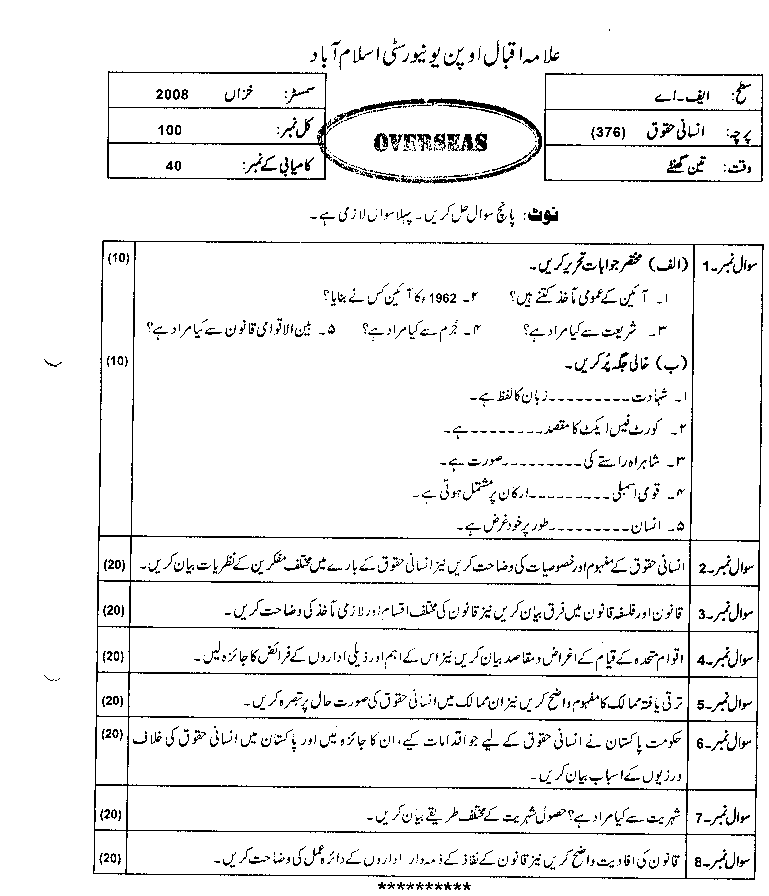 علامہ اقبال اوپن یونیورسٹی اسلام آباد
سطح: ایف۔اے
سمسٹر: خزاں 2008
پرچہ: انسانی حقوق (376)
OVERSEAS
کل نمبر: 100
وقت: تین گھنٹے
کامیابی کے نمبر: 40
نوٹ: پانچ سوال حل کریں۔ پہلا سوال لازمی ہے۔
سوال نمبر۔1 (الف) مختصر جوابات تحریر کریں۔ (10)
۱۔ آئین کے عمومی مآخذ کتنے ہیں؟ ۲۔ 1962ء کا آئین کس نے بنایا؟
۳۔ شریعت سے کیا مراد ہے؟ ۴۔ جُرم سے کیا مراد ہے؟ ۵۔ بین الاقوامی قانون سے کیا مراد ہے؟
(ب) خالی جگہ پُر کریں۔ (10)
۱۔ شہادت---------زبان کا لفظ ہے۔
۲۔ کورٹ فیس ایکٹ کا مقصد--------ہے۔
۳۔ شاہراہ راستے کی---------صورت ہے۔
۴۔ قومی اسمبلی---------ارکان پر مشتمل ہوتی ہے۔
۵۔ انسان---------طور پر خود غرض ہے۔
سوال نمبر۔2 انسانی حقوق کے مفہوم اور خصوصیات کی وضاحت کریں نیز انسانی حقوق کے بارے میں مختلف مفکرین کے نظریات بیان کریں۔ (20)
سوال نمبر۔3 قانون اور فلسفہ قانون میں فرق بیان کریں نیز قانون کی مختلف اقسام اور لازمی مآخذ کی وضاحت کریں۔ (20)
سوال نمبر۔4 اقوام متحدہ کے قیام کے اغراض و مقاصد بیان کریں نیز اس کے اہم اور ذیلی اداروں کے فرائض کا جائزہ لیں۔ (20)
سوال نمبر۔5 ترقی یافتہ ممالک کا مفہوم واضح کریں نیز ان ممالک میں انسانی حقوق کی صورت حال پر تبصرہ کریں۔ (20)
سوال نمبر۔6 حکومت پاکستان نے انسانی حقوق کے لیے جو اقدامات کیے، ان کا جائزہ لیں اور پاکستان میں انسانی حقوق کی خلاف (20)
ورزیوں کے اسباب بیان کریں۔
سوال نمبر۔7 شہریت سے کیا مراد ہے؟ حصول شہریت کے مختلف طریقے بیان کریں۔ (20)
سوال نمبر۔8 قانون کی افادیت واضح کریں نیز قانون کے نفاذ کے ذمہ دار اداروں کے دائرہ عمل کی وضاحت کریں۔ (20)
**********